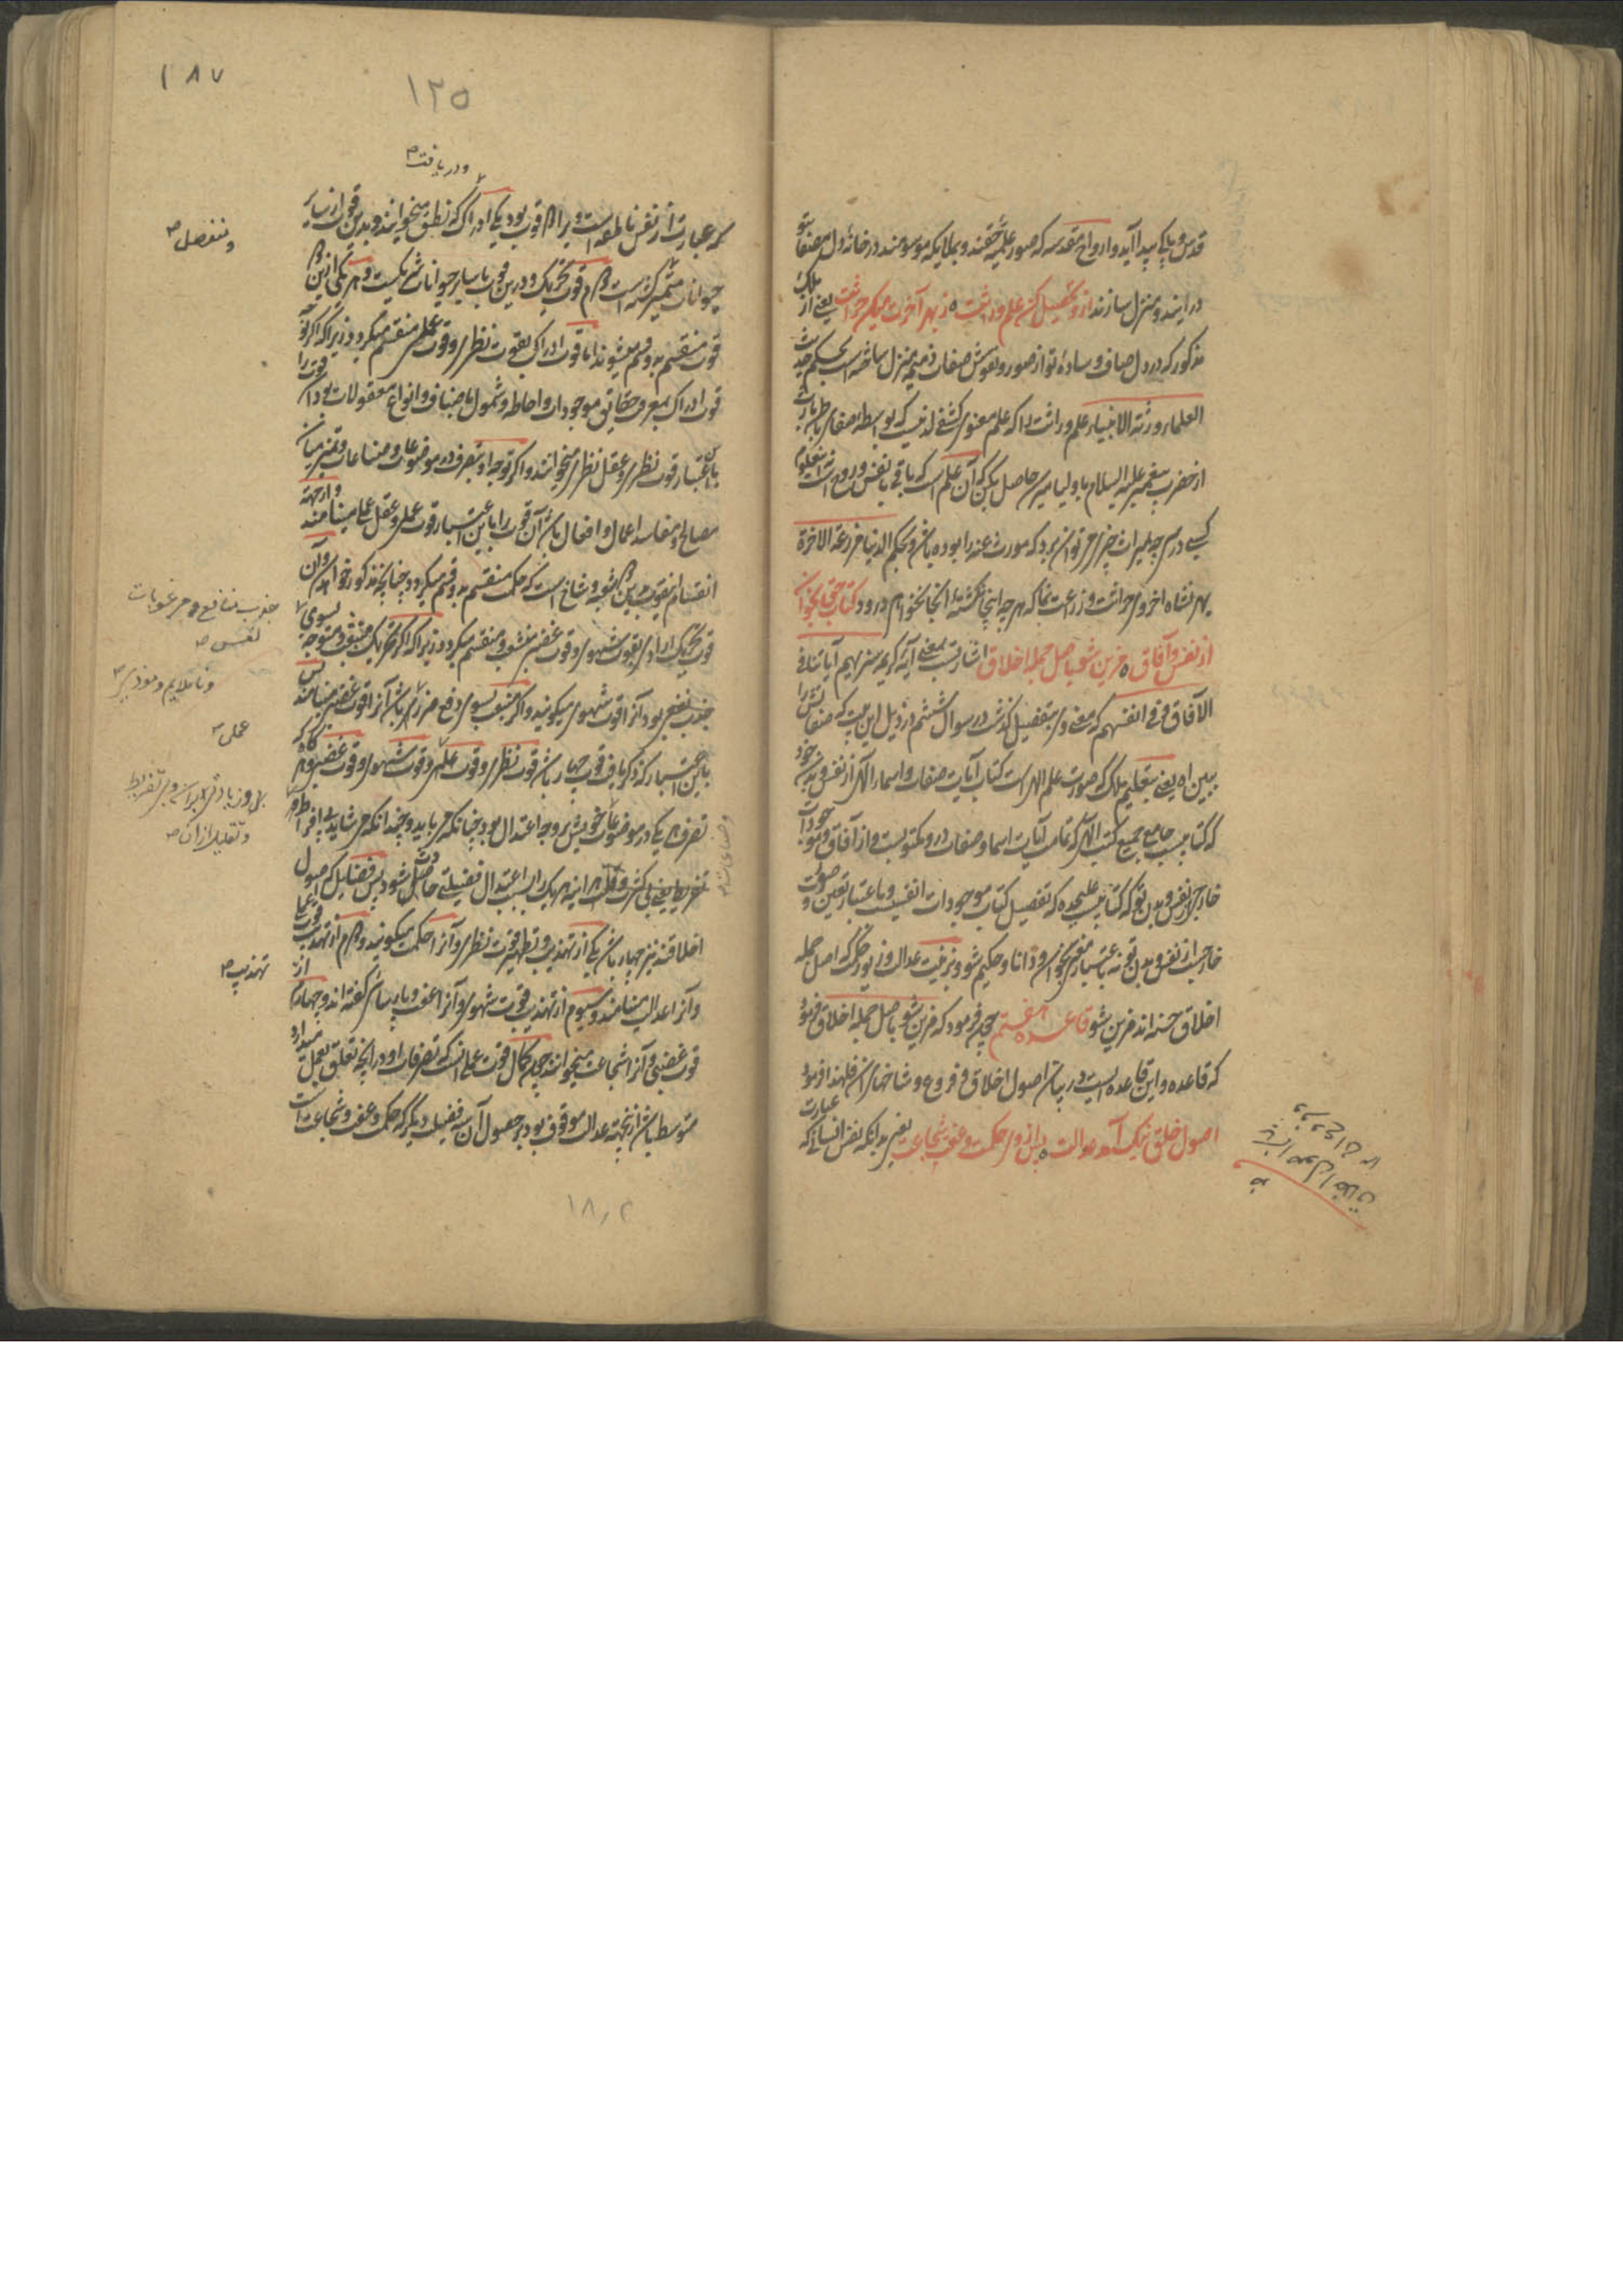 قدس و پاک پیدا آید و ارواح مقدسه که صور علمیه حقند و بملایکه موسومند در خانه دل مصفا شو
در ایند و منزل سازند ازو تحصیل کن علم وراثت ز بهر آخرت میکن حراثت یعنی از ملک
مذکور که در دل صاف و ساده تو از صور و نقوش صفات ذمیمه منزل ساخته است بحکم حدیث
العلماء ورثة الانبیاء علم وراثت را که علم معنوی کشفی لدنیست که بواسطه صفای باطن بارث
از حضرت پیغمبر علیه السلام باولیا میرسد حاصل کن که آن علم است که باقی بنفس و روح است
کسی در میراث چیزی تواند برد که مورث عنه را بوده باشد و بحکم الدنیا مزرعة الاخرة
بهر نشاه اخروی حراثت و زراعت نما که هر چه اینجا نکشته آنجا نخواهی درود کتاب حق بخوان
از نفس و آفاق مزین شو باصل جمله اخلاق اشارتست بمعنی آیه کریمه سنریهم آیاتنا فی
الآفاق و فی انفسهم که معنی وی بتفصیل گذشت در سوال ششم در ذیل این بیت که صفاتش را
ببین اه یعنی بتعلیم ملک که صورت علم الهی است کتاب آیات صفات و اسماء الهی از نفس و بدن خود
که کتابیست جامع جمیع کتب الهی که تمامت آیات اسما و صفات در و مکتوبست و از آفاق و موجودات
خارج از نفس و بدن تو که کتابیست علیحده که تفصیل کتاب موجودات انفسیت و باعتبار تعین و صورت
خارجست از نفس و بدن تو نه باعتبار معنی بخوان و دانا و حکیم شو و بزینت عدالت و زیور حکمت که اصل جمله
اخلاق حسنه اند مزین شو قاعده هفتم چون فرمود که مزین شو باصل جمله اخلاق فرمود
که قاعده و این قاعده ایست در بیان اصول اخلاق و فروع و شاخهای آن فلهذا فرمود
اصول خلق نیک آمد عدالت پس از وی حکمت و عفت شجاعت یعنی بدانکه نفس انسانی که عبارت
۱۸۷
۱۲۵
و دریافت
که عبارت از نفس ناطقه است و برا دو قوت بود یکی ادراک که نطق میخوانند و بدین قوت از سایر
حیوانات متمیز گشته است دوم قوت تحریک و درین قوت با سایر حیوانات شریکیست و هر یکی ازین دو
قوت منقسم بدو قسم میشوند اما قوت ادراک بقوت نظری و قوت عملی منقسم میگردد زیرا که اگر توجه
قوت ادراک بمعرفت حقایق موجودات و احاطه و شمول باصناف و انواع معقولات بود آن قوت را
باین اعتبار قوت نظری و عقل نظری میخوانند و اگر توجه او بتصرف در موضوعات و صناعات و تمیز میان
مصالح و مفاسد اعمال و افعال باشد آن قوت را باین اعتبار قوت عملی و عقل عملی مینامند و از جهت
انقسام این قوت بدین دو شعبه و شاخ است که حکمت منقسم بدو قسم میگردد چنانچه مذکور خواهد شد و آن
قوت تحریک ارادی بقوت شهوی و قوت غضبی منشعب و منقسم میگردد زیرا که اگر تحریک منبعث و متوجه بسوی
جذب نفعی بود آنرا قوت شهوی میگویند و اگر منبعث بسوی دفع ضرر باشد آنرا قوت غضبی مینامند پس
باین اعتبار که ذکر یافت قوت چهار باشد قوت نظری و قوت عملی و قوت شهوی و قوت غضبی و هر گاه که
تصرف هر یکی در موضوعات خویش بر وجه اعتدال بود چنانکه می باید و چندانکه می شاید بی افراط و
تفریط یعنی بی کثرت و قلت هر آینه هر یک را بسبب اعتدال فضیلتی حاصل شود پس فضایل که اصول
اخلاقند نیز چهار باشد یکی از تهذیب و تطهیر قوت نظری و آنرا حکمت میگویند دوم از تهذیب قوت عملی
و آنرا عدالت مینامند و سیوم از تهذیب قوت شهوی و آنرا عفت و پارسائی گفته اند و چهارم از
قوت غضبی و آنرا شجاعت میخوانند چون کمال قوت عملی آنست که تصرفات او در آنچه تعلق بعمل میدارد
متوسط باشد از نتیجه عدالت موقوف بود بر حصول آن سه فضیلت دیگر که حکمت و عفت و شجاعت است
و منفصل
جذب منافع و مرغوبات
نفس
و ناملایم و موذی
عملی
و تقلیل از آن
تهذیب